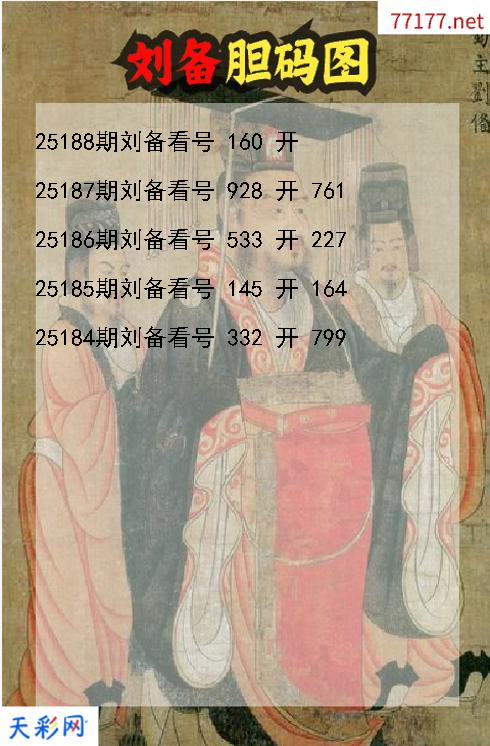 77177.net
蜀主劉備
刘备胆码图
25188期刘备看号 160 开
25187期刘备看号 928 开 761
25186期刘备看号 533 开 227
25185期刘备看号 145 开 164
25184期刘备看号 332 开 799
天彩网